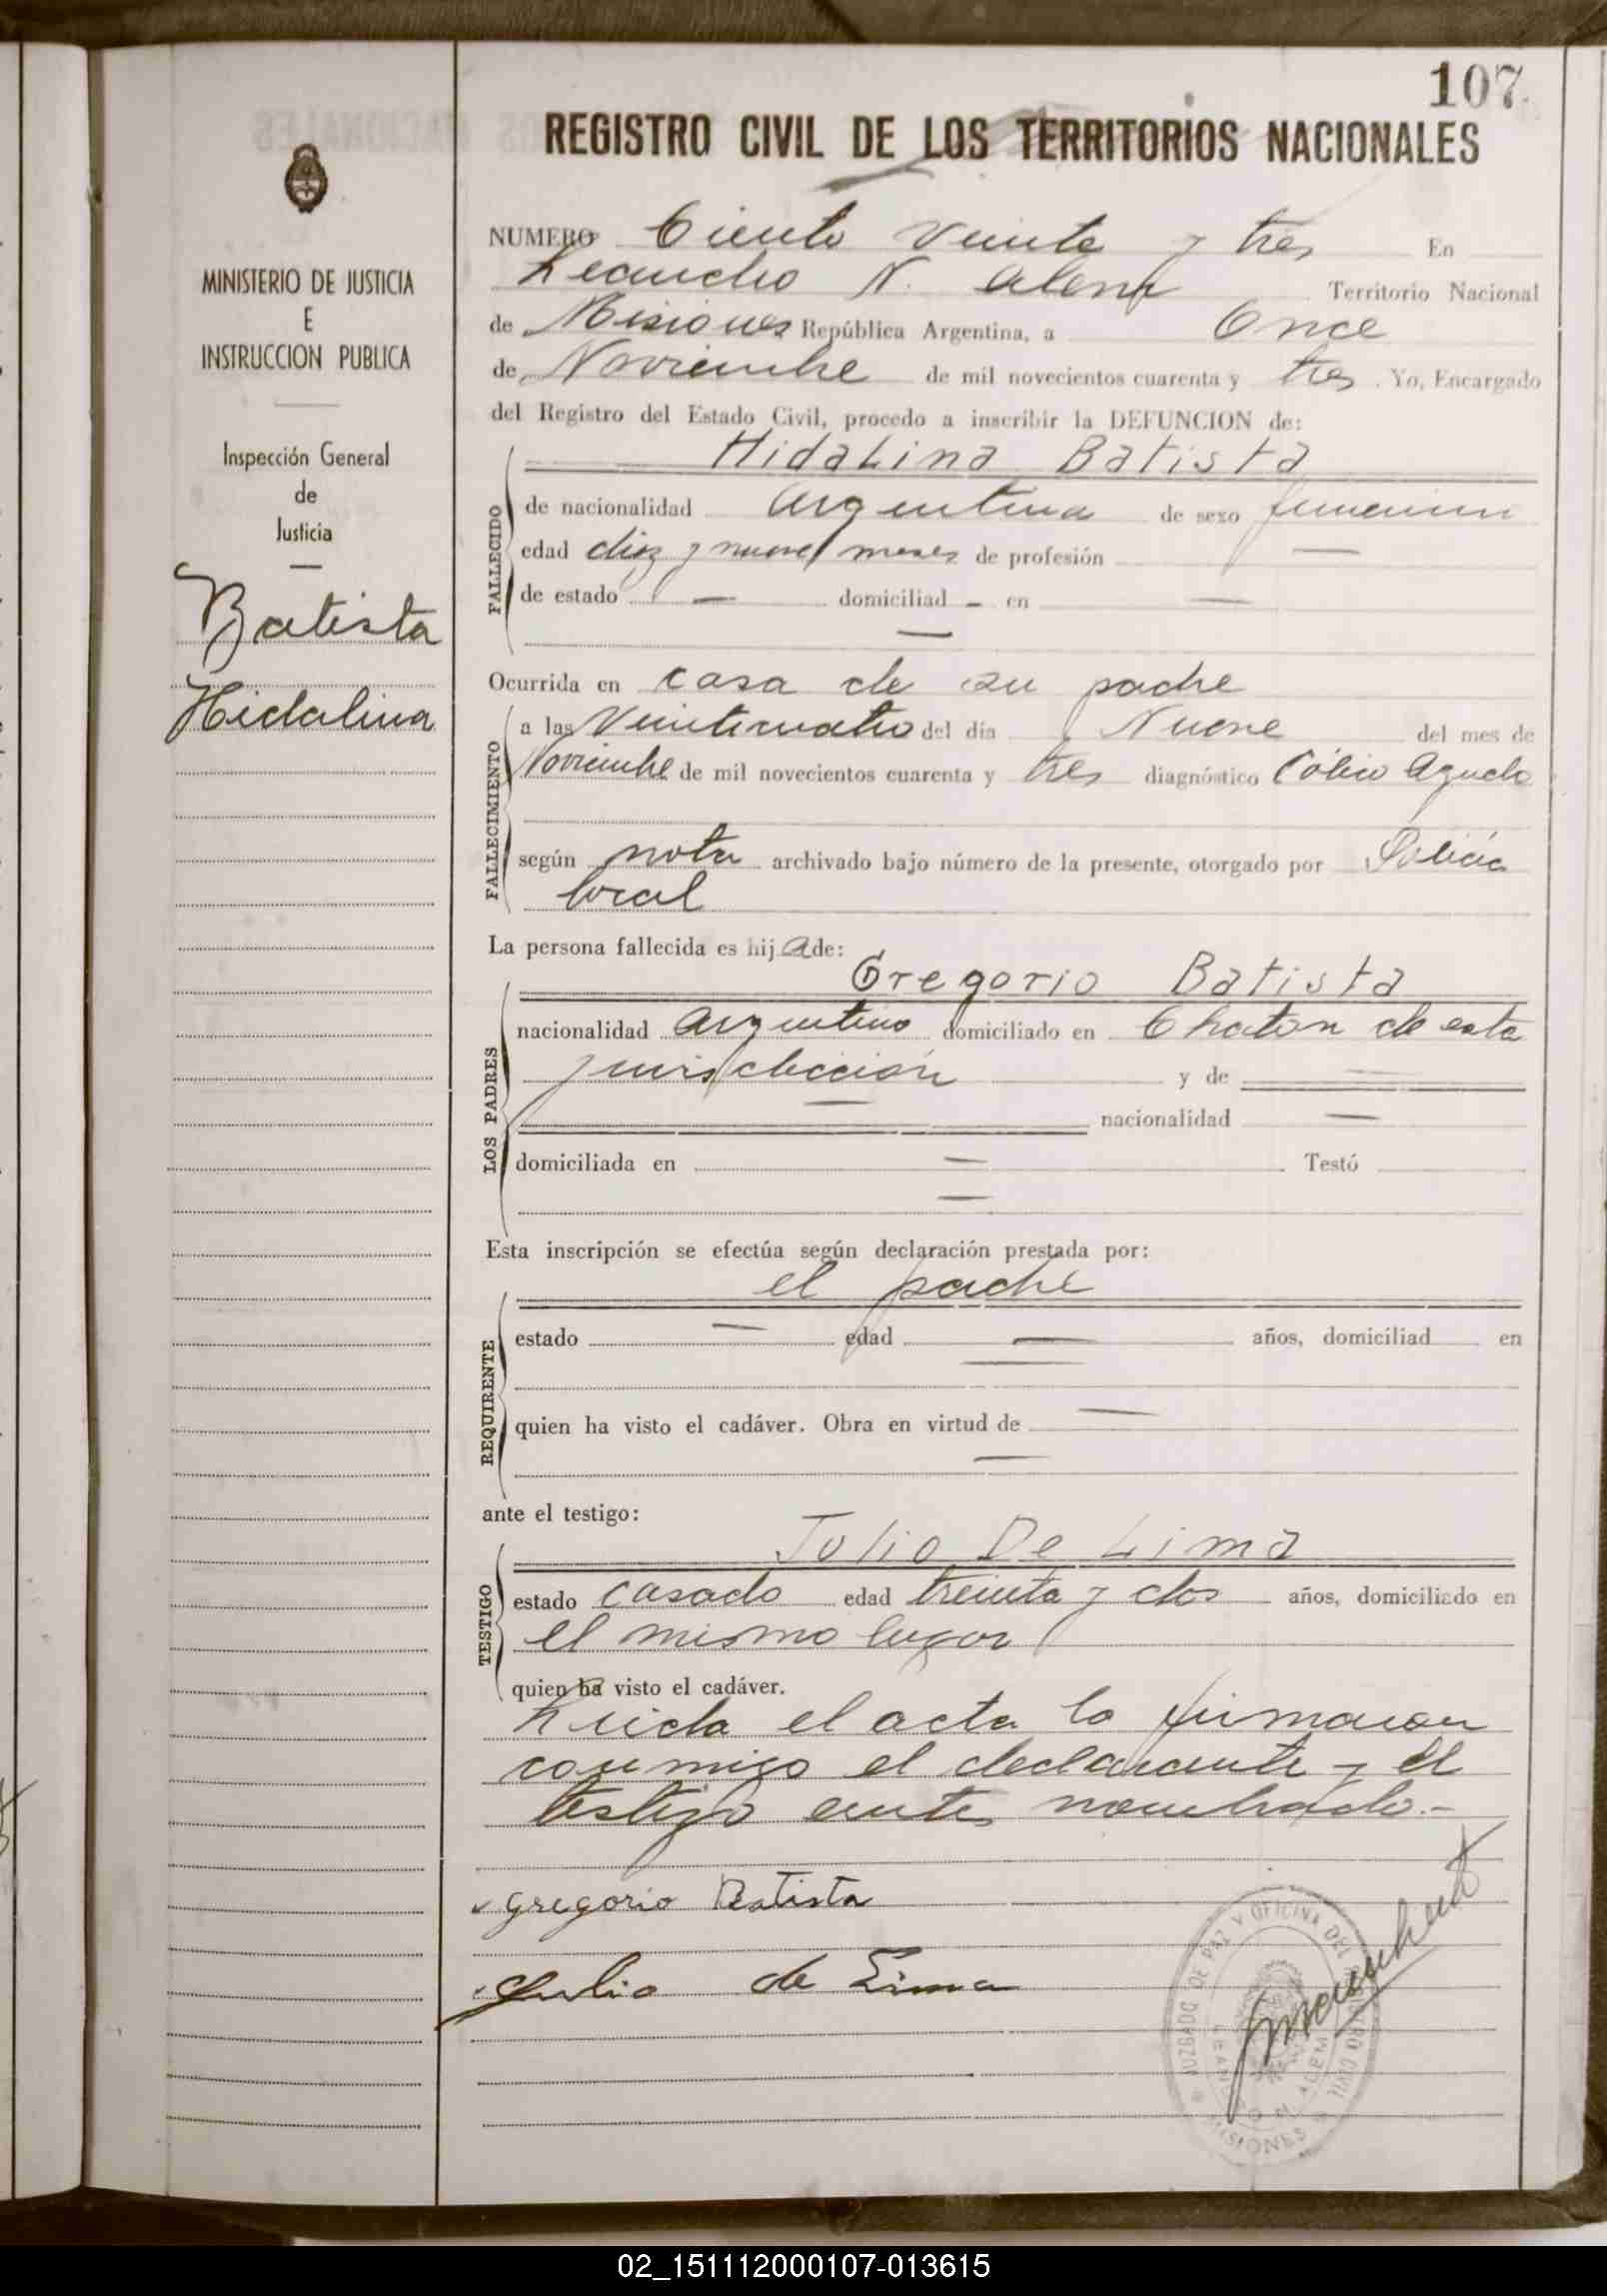 107.
REGISTRO CIVIL DE LOS TERRITORIOS NACIONALES
MINISTERIO DE JUSTICIA
E
INSTRUCCION PUBLICA
Inspección General
de
Justicia
Batista
Hidalina
NUMERO Ciento Veinte y tres En
Leandro N. Alem Territorio Nacional
de Misiones República Argentina, a Once
de Noviembre de mil novecientos cuarenta y tres. Yo, Encargado
del Registro del Estado Civil, procedo a inscribir la DEFUNCION de:
Hidalina Batista
FALLECIDO
de nacionalidad Argentina de sexo femenino
edad diez y nueve meses de profesión —
de estado — domiciliad - en —
—
Ocurrida en casa de su padre
FALLECIMIENTO
a las Veinticuatro del día Nueve del mes de
Noviembre de mil novecientos cuarenta y tres diagnóstico Cólico Agudo
según nota archivado bajo número de la presente, otorgado por Policía
local
La persona fallecida es hija de:
Gregorio Batista
LOS PADRES
nacionalidad Argentino domiciliado en Chaton de esta
jurisdicción y de —
— nacionalidad —
domiciliada en — Testó
—
Esta inscripción se efectúa según declaración prestada por:
el padre
REQUIRENTE
estado — edad — años, domiciliad en
—
quien ha visto el cadáver. Obra en virtud de —
—
ante el testigo:
Julio De Lima
TESTIGO
estado casado edad treinta y dos años, domiciliado en
el mismo lugar
quien ha visto el cadáver.
Leida el acta la firmaron
conmigo el declarante y el
testigo antes nombrado.-
Gregorio Batista
Julio de Lima
JUZGADO DE PAZ Y OFICINA DEL REGISTRO CIVIL
LEANDRO N. ALEM
MISIONES
02_151112000107-013615